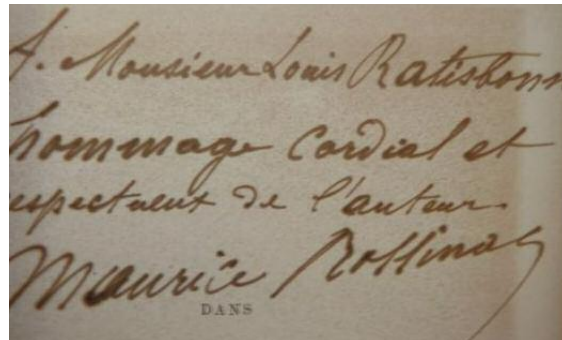 A. Monsieur Louis Ratisbonn
hommage cordial et
espectueux de l'auteur
Maurice Rollinat
DANS